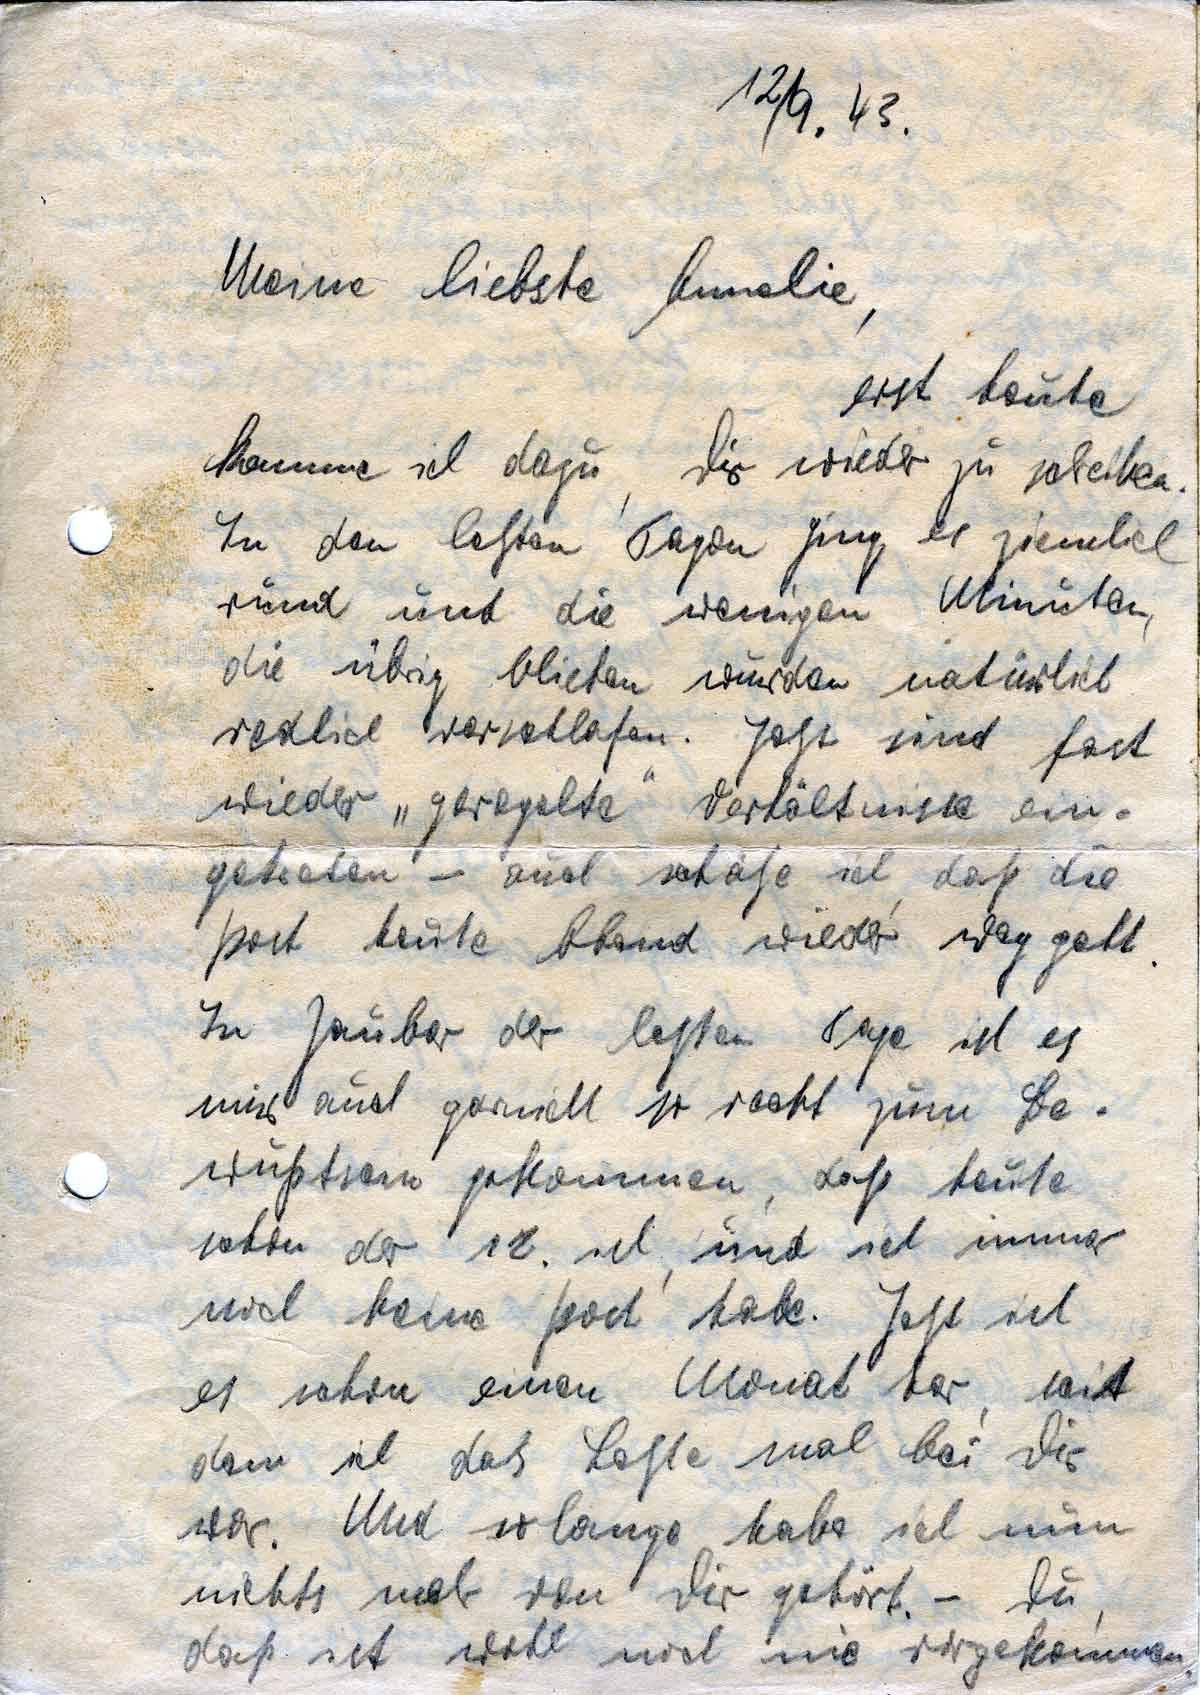 12/9. 43.
Meine liebste Annelie,
erst heute
komme ich dazu, Dir wieder zu schreiben.
In den letzten Tagen ging es ziemlich
rund und die wenigen Minuten,
die übrig blieben wurden natürlich
redlich verschlafen. Jetzt sind fast
wieder „geregelte" Verhältnisse ein-
getreten – auch schätze ich, daß die
Post heute Abend wieder weg geht.
In Zauber der letzten Tage ist es
mir auch garnicht so recht zum Be-
wußtsein gekommen, daß heute
schon der 12. ist, und ich immer
noch keine Post habe. Jetzt ist
es schon einen Monat her, seit
dem ich das Letzte mal bei Dir
war. Und so lange habe ich nun
nichts mehr von Dir gehört. – Du,
daß ist wohl noch nie vorgekommen.